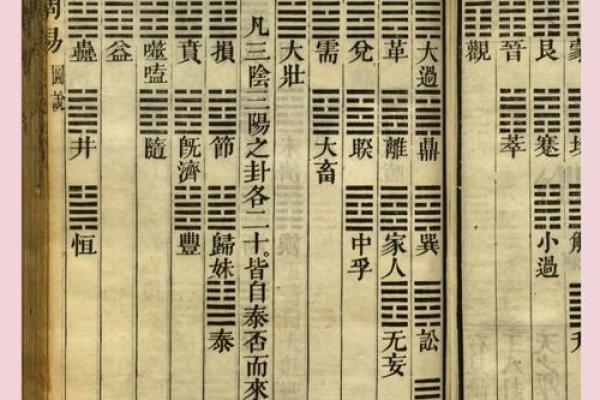 蒙 坎 解 升
艮 蹇 小過
晉 萃
觀
大過 鼎 巽 訟
革 離 家人 无妄
兌 睽 中孚
需 大畜
大壯
凡三陰三陽之卦各二十。皆自泰否而來
損 節 歸妹 泰
賁 既濟 豐
噬嗑 隨
益
蠱 井 恒
周易 圖說